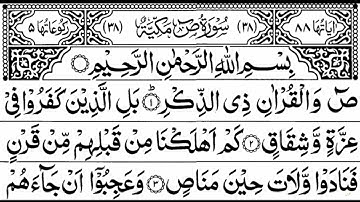 اٰیَاتُهَا ٨٨ (٣٨) سُوْرَةُ صٓ مَكِّیَّةٌ (٣٨) رُكُوْعَاتُهَا ٥
بِسْمِ اللّٰهِ الرَّحْمٰنِ الرَّحِیْمِ
صٓ وَ الْقُرْاٰنِ ذِی الذِّكْرِ ١ بَلِ الَّذِیْنَ كَفَرُوْا فِیْ
عِزَّةٍ وَّ شِقَاقٍ ٢ كَمْ اَهْلَكْنَا مِنْ قَبْلِهِمْ مِّنْ قَرْنٍ
فَنَادَوْا وَّ لَاتَ حِیْنَ مَنَاصٍ ٣ وَ عَجِبُوْۤا اَنْ جَآءَهُمْ